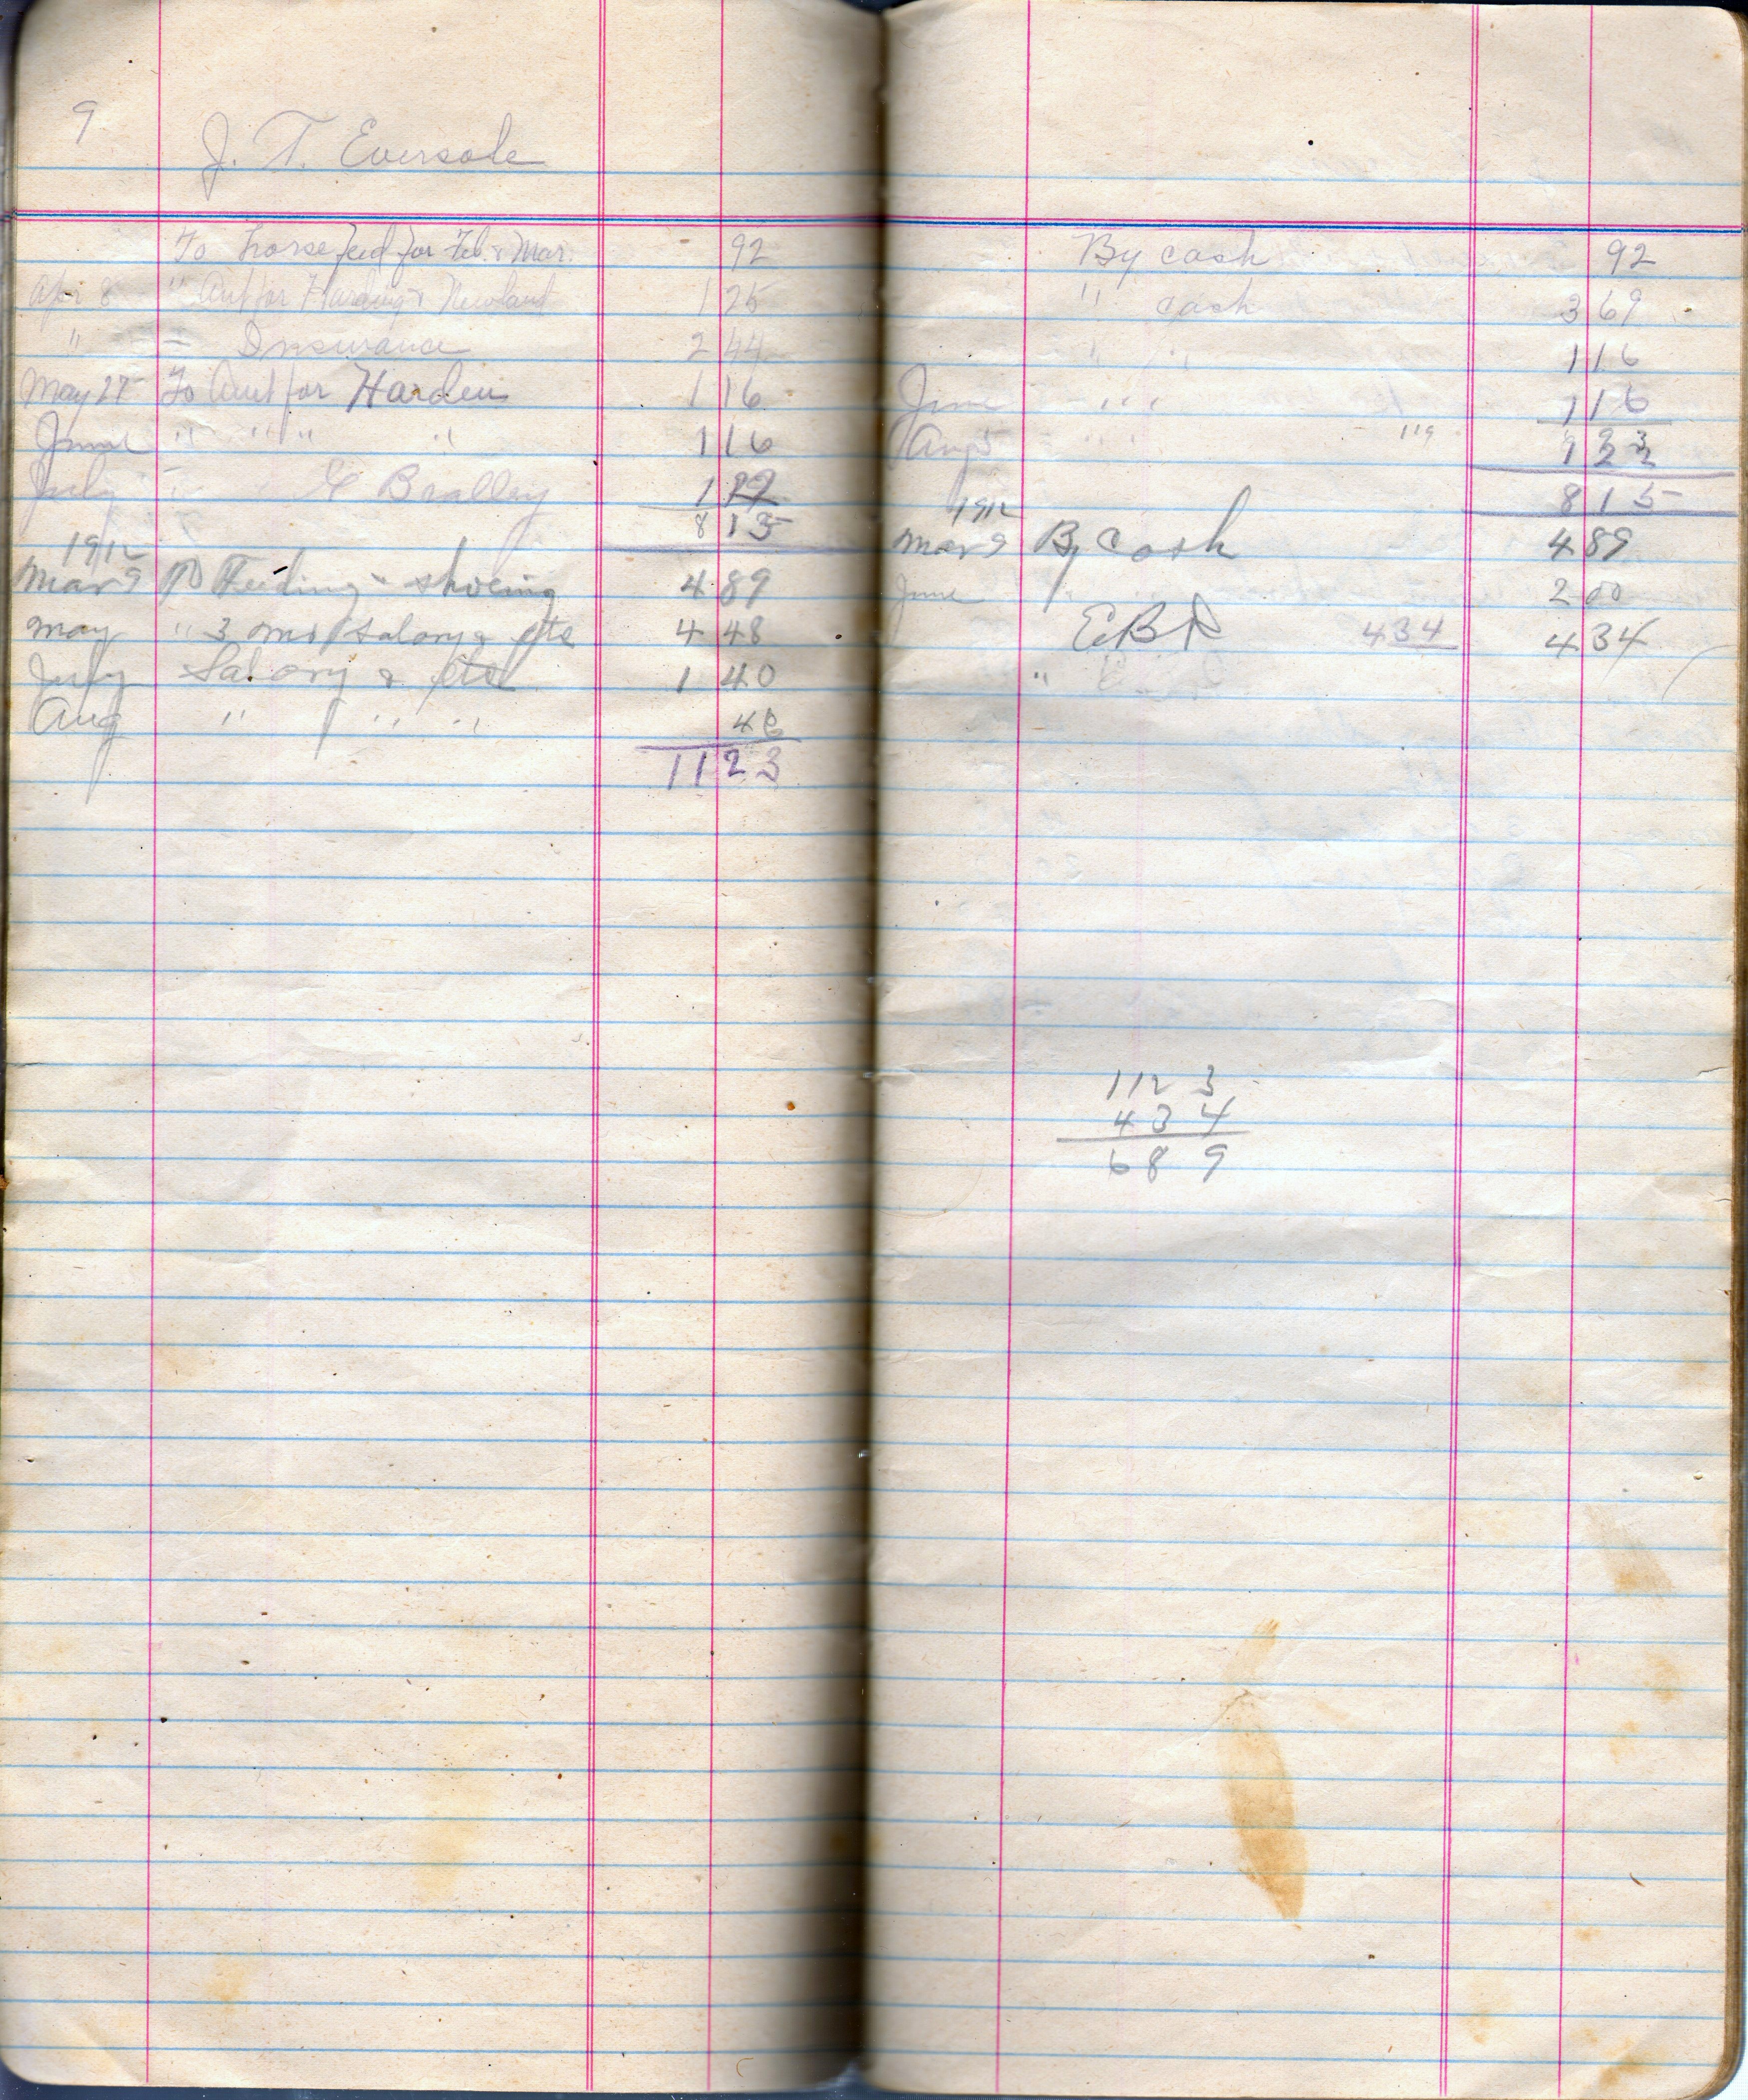 9
J. T. Eversole
To horse feed for Feb. & Mar. 92
Apr 8 " Amt for Harding & Newland 1 25
" Insurance 2 44
May 27 To Amt for Harden 1 16
June " " " " 1 16
July Bralley 1 22
8 15
1912
Mar 9 To Feeding & shoeing 4 89
May " 3 mos salary & etc 4 48
July Salary & etc 1 40
Aug " " " " 46
11 23
By cash 92
" cash 3 69
" " 1 16
June " " 1 16
Aug " " 1 22
8 15
1912
Mar 9 By Cash 4 89
June 2 00
E.B.D 434 4 34
"
1123
434
689